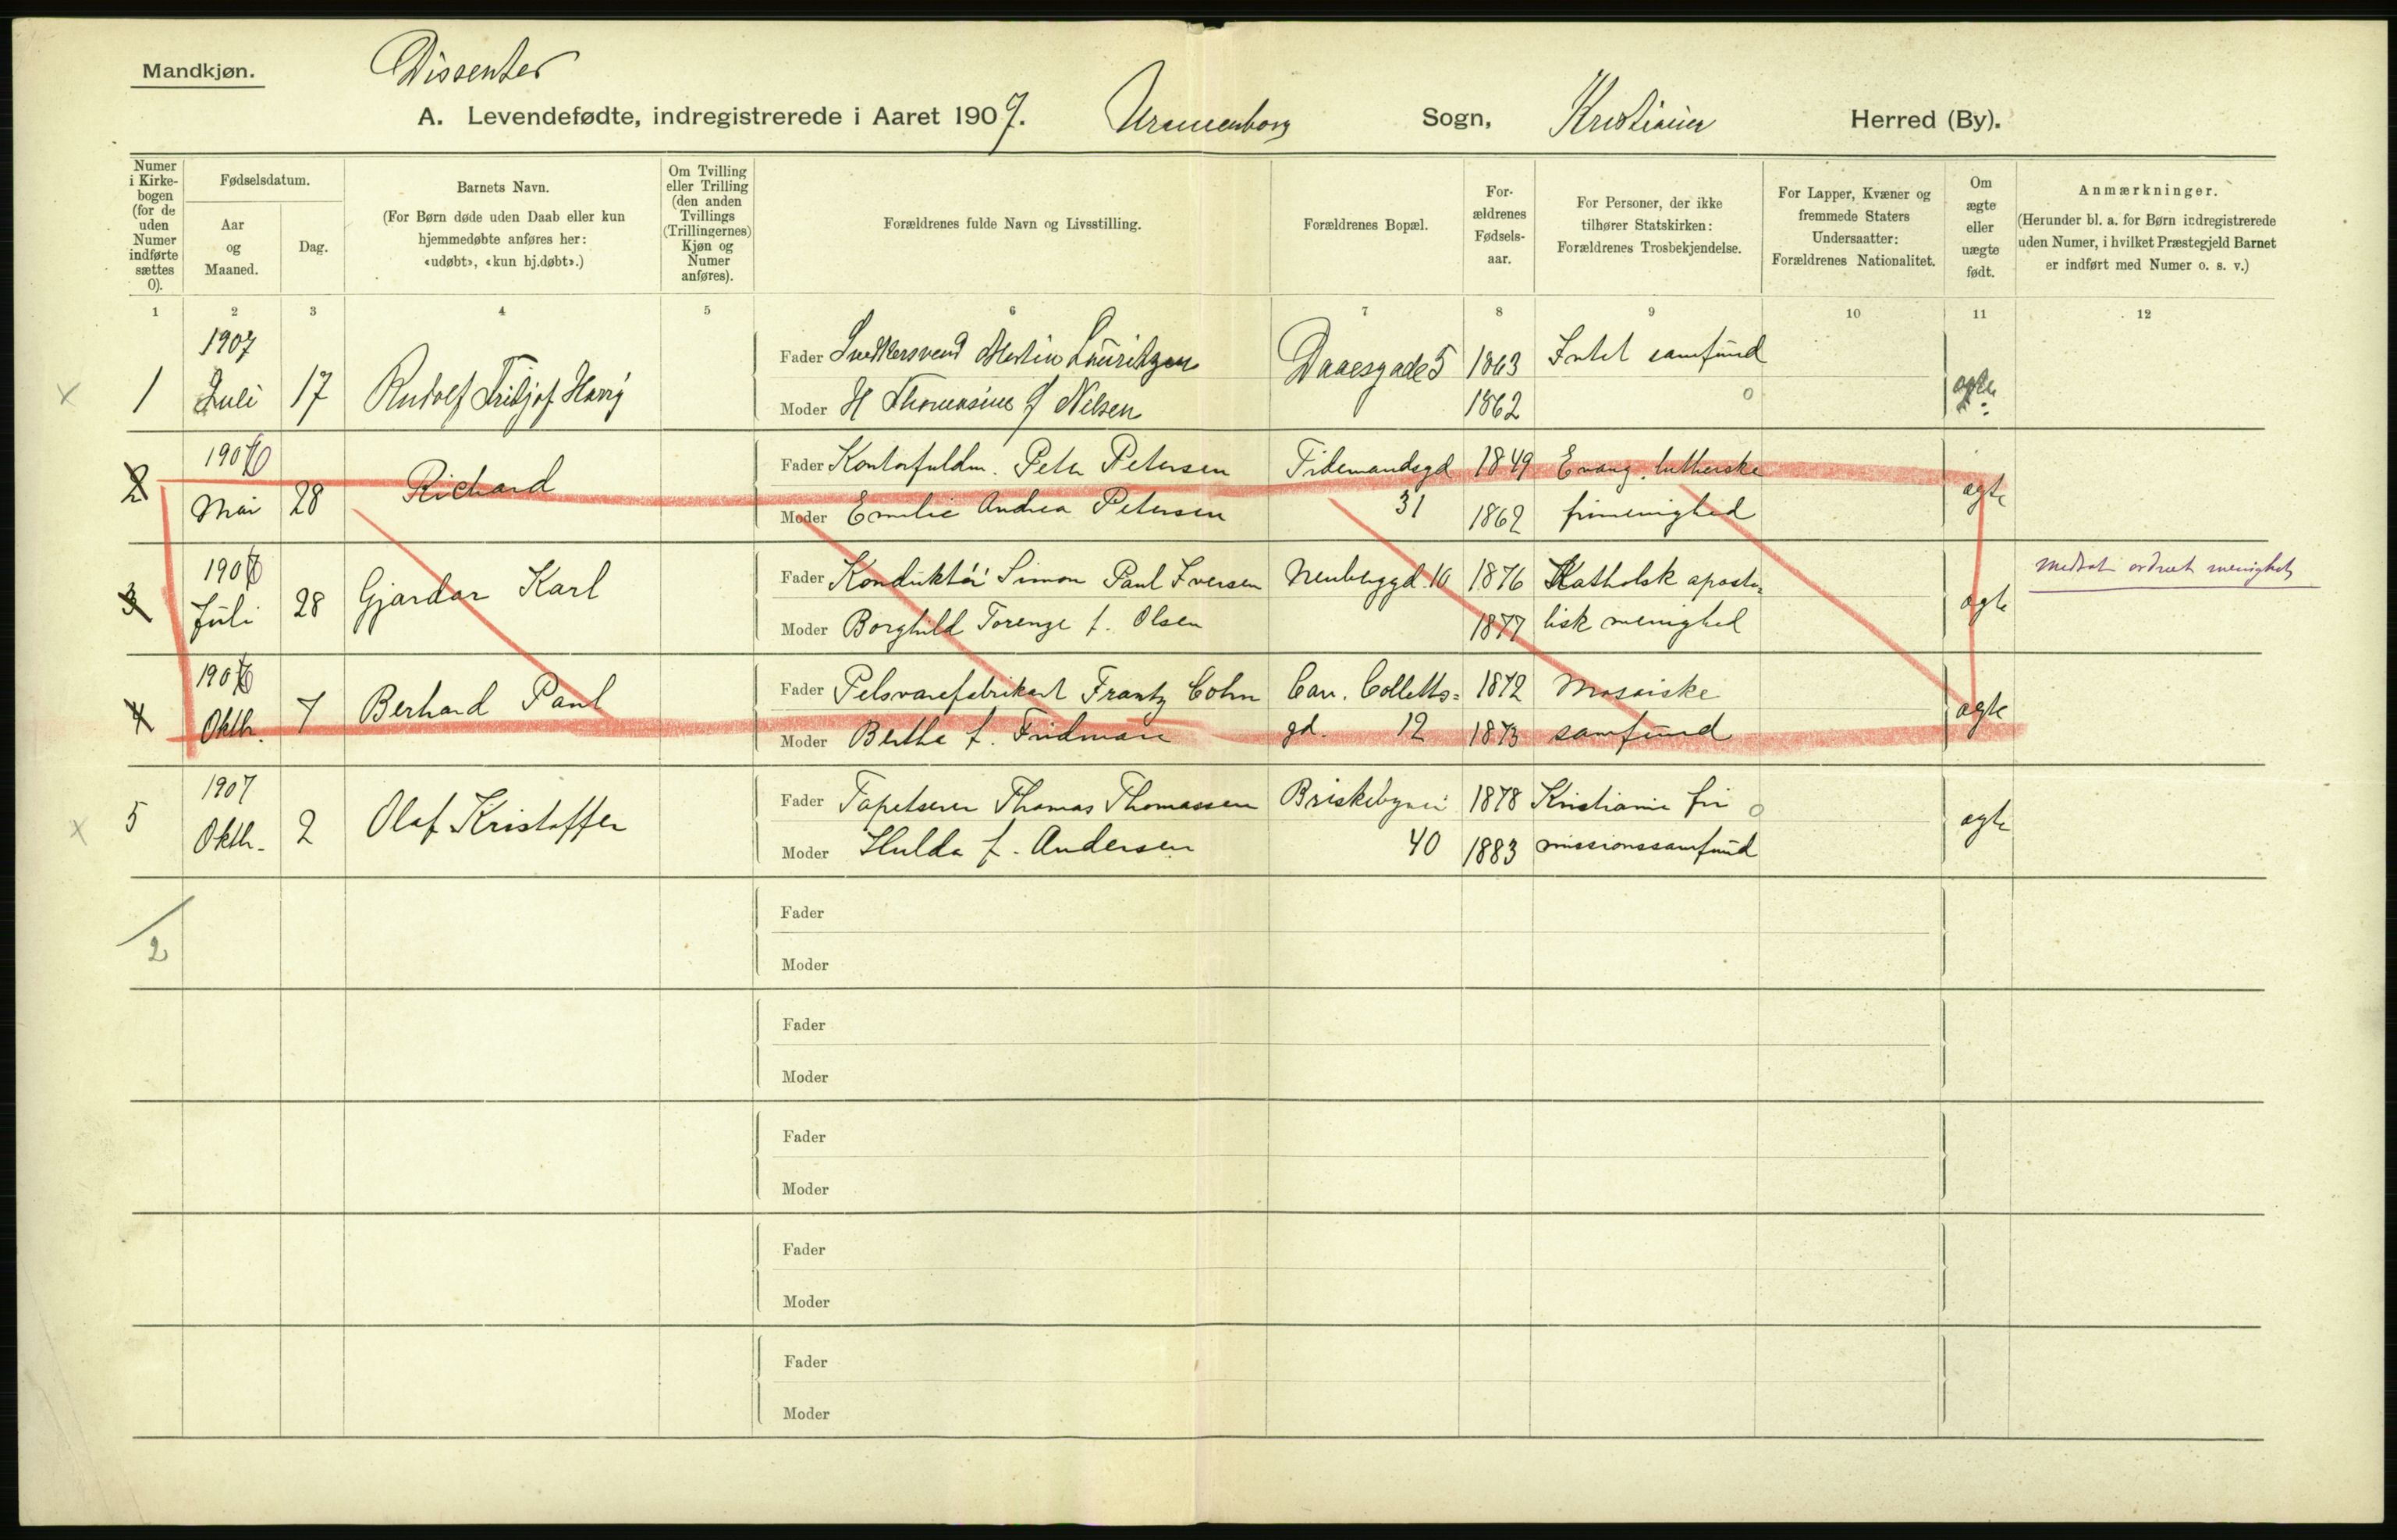 Mandkjøn.
Dissenter
A. Levendefødte, indregistrerede i Aaret 1907. Uranienborg Sogn, Kristiania Herred (By).
Numer i Kirkebogen (for de uden Numer indførte sættes 0).
Fødselsdatum.
Aar og Maaned.
Dag.
Barnets Navn.
(For Børn døde uden Daab eller kun hjemmedøbte anføres her: «udøbt», «kun hj.døbt».)
Om Tvilling eller Trilling (den anden Tvillings (Trillingernes) Kjøn og Numer anføres).
Forældrenes fulde Navn og Livsstilling.
Forældrenes Bopæl.
Forældrenes Fødselsaar.
For Personer, der ikke tilhører Statskirken: Forældrenes Trosbekjendelse.
For Lapper, Kvæner og fremmede Staters Undersaatter: Forældrenes Nationalitet.
Om ægte eller uægte født.
Anmærkninger.
(Herunder bl. a. for Børn indregistrerede uden Numer, i hvilket Præstegjeld Barnet er indført med Numer o. s. v.)
1 2 3 4 5 6 7 8 9 10 11 12
1907 Fader Snedkersvend Martin Lauritzen Daaesgade 5 1863 Intet samfund
x 1 Juli 17 Rudolf Fritjof Harry Moder H Thomasine f Nilsen 1862 o ægte
1906 Fader Kontorfuldm. Peter Petersen Tidemandsgd 1849 Evang. lutherske
2 Mai 28 Richard Moder Emilie Andrea Petersen 31 1862 frimenighed ægte
1906 Fader Konduktør Simon Paul Iversen Neubeggd. 10 1876 Katholsk aposto-
3 Juli 28 Gjardar Karl Moder Borghild Torenze f. Olsen 1877 lisk menighed ægte
1906 Fader Pelsvarefabrikant Frantz Cohn Cam. Colletts= 1872 Mosaiske
4 Oktb. 7 Berhard Paul Moder Berthe f. Fridman gd. 12 1873 samfund ægte
1907 Fader Tapetserer Thomas Thomassen Briskebyvei 1878 Kristiania fri o
x 5 Oktb. 2 Olaf Kristoffer Moder Hulda f. Andersen 40 1883 missionssamfund ægte
Fader
2 Moder
Fader
Moder
Fader
Moder
Fader
Moder
Fader
Moder